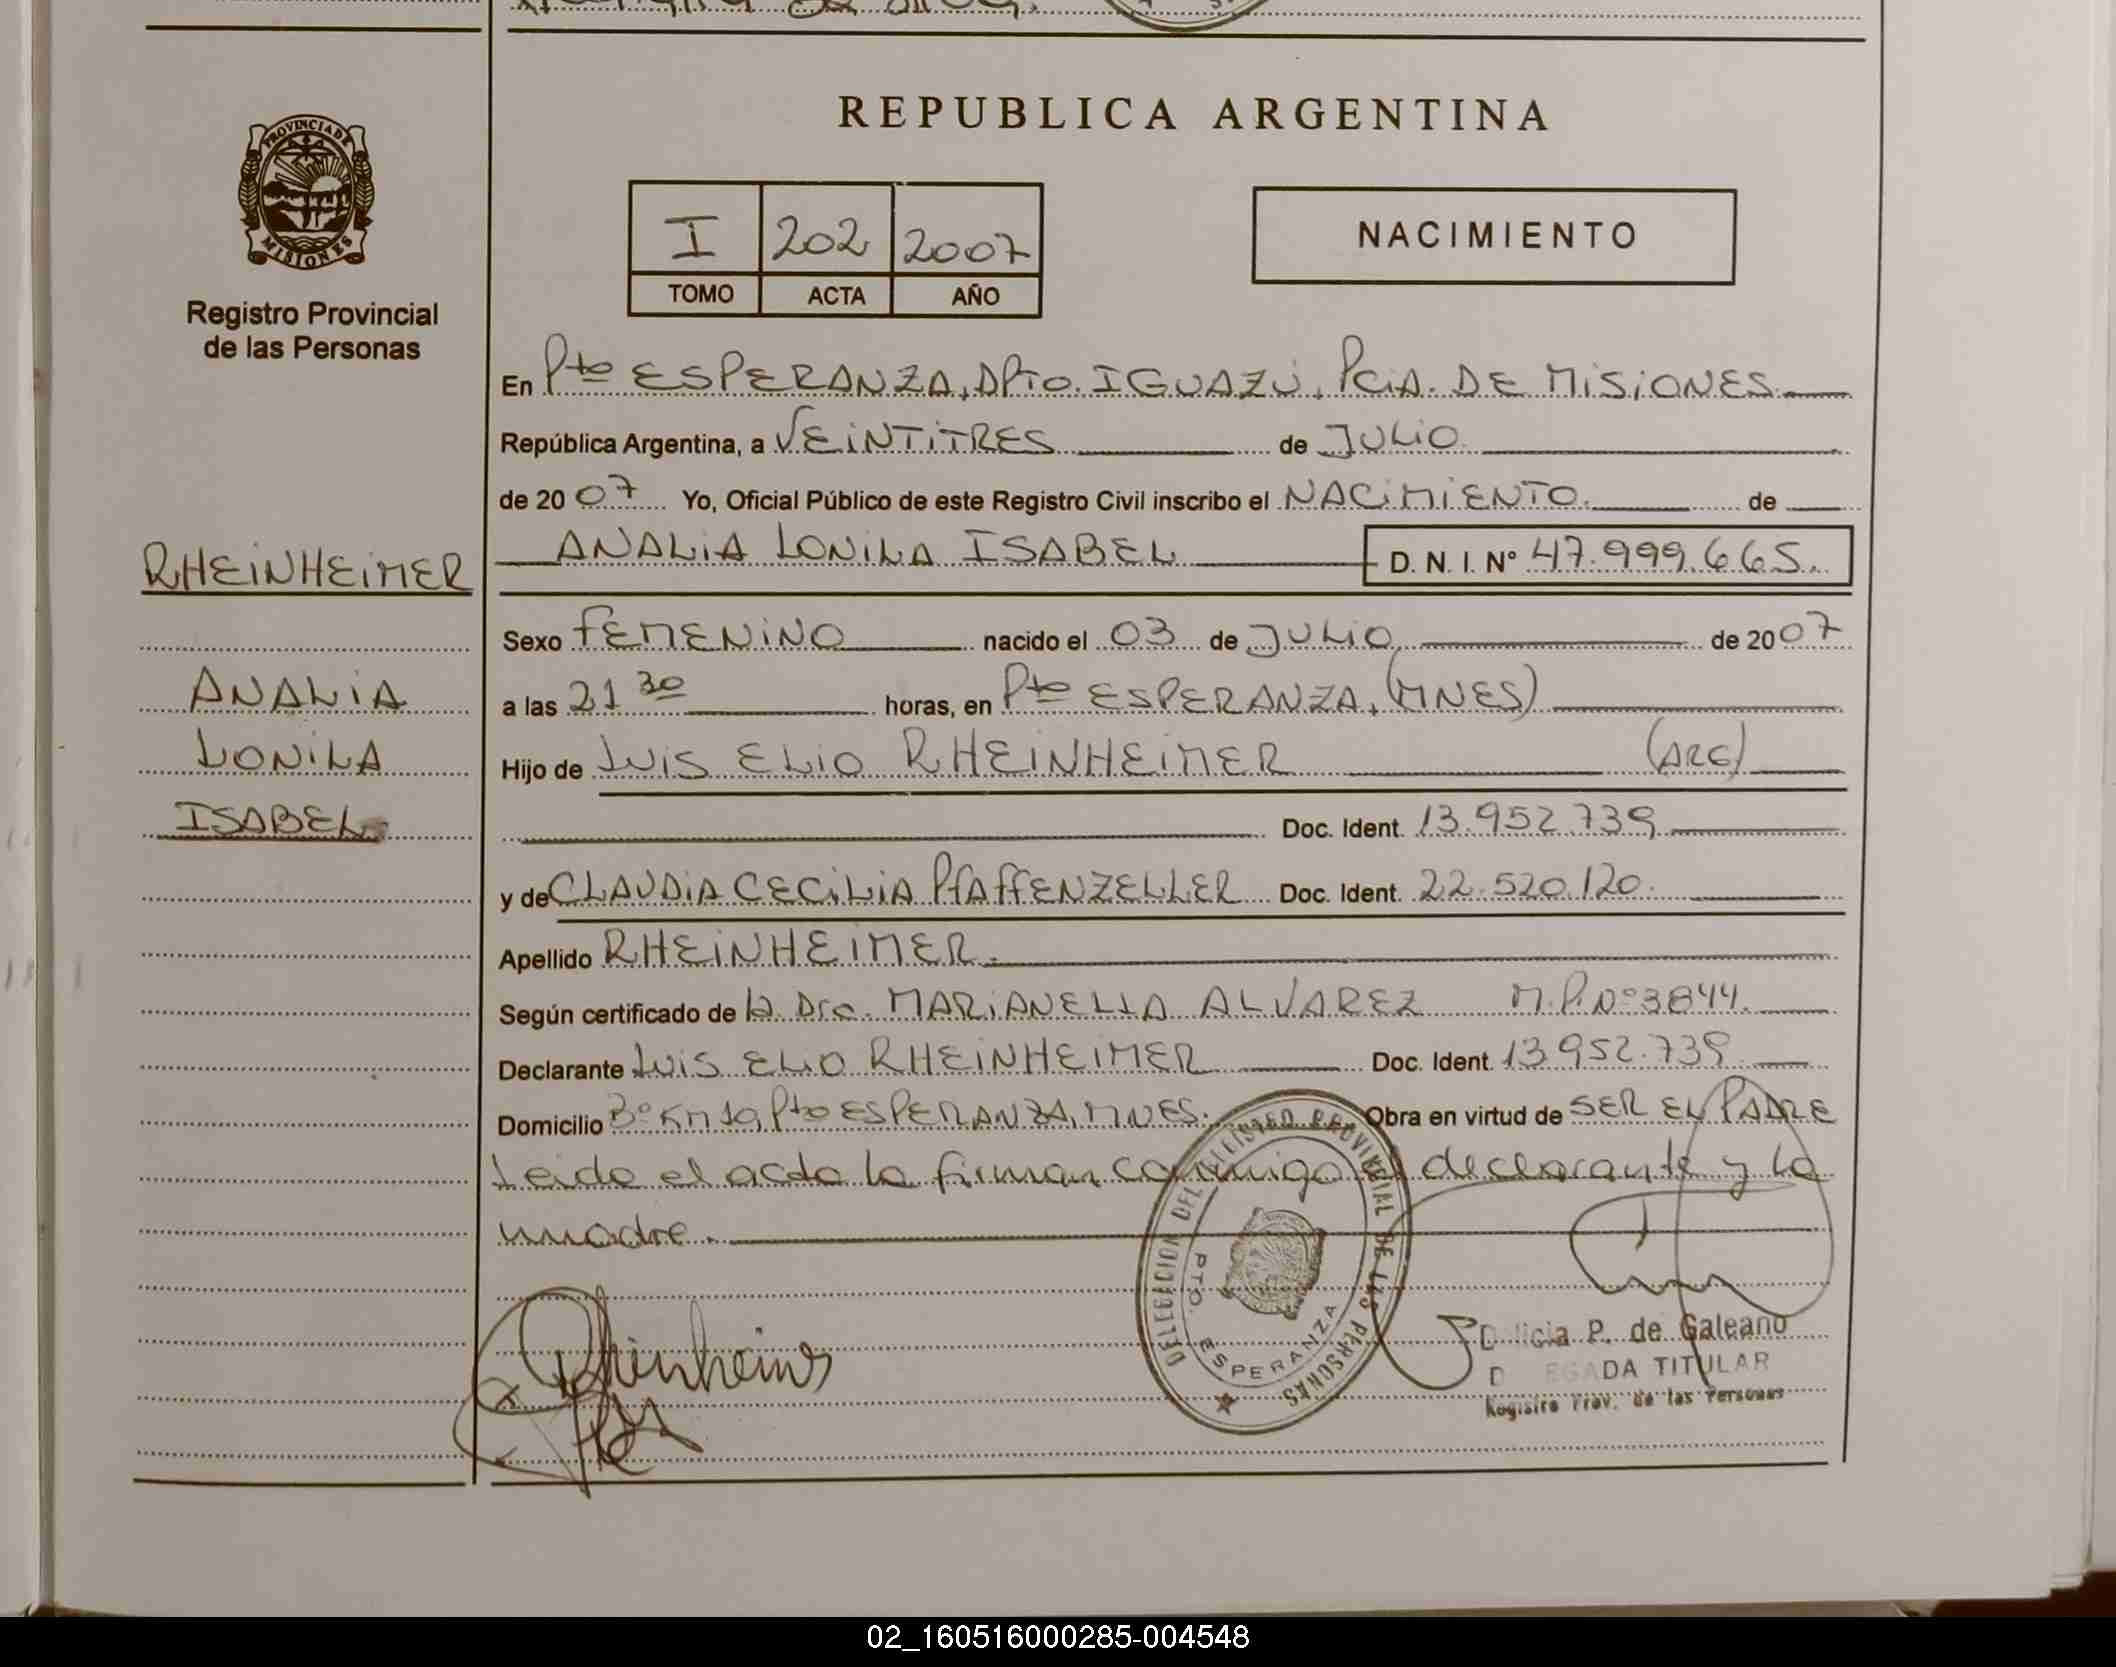 REPUBLICA ARGENTINA
PROVINCIA DE
MISIONES
Registro Provincial
de las Personas
I 202 2007
TOMO ACTA AÑO
NACIMIENTO
En Pto ESPERANZA, DPTO. IGUAZÚ, PCIA. DE MISIONES
República Argentina, a VEINTITRES de JULIO
de 2007 Yo, Oficial Público de este Registro Civil inscribo el NACIMIENTO. de
ANALIA LONILA ISABEL D. N. I. N° 47.999.665.
RHEINHEIMER
ANALIA
LONILA
ISABEL
Sexo FEMENINO nacido el 03 de JULIO de 2007
a las 21 30 horas, en Pto ESPERANZA, (MNES)
Hijo de LUIS ELIO RHEINHEIMER (ARG)
Doc. Ident. 13.952.739
y de CLAUDIA CECILIA PfAffENZELLER Doc. Ident. 22.520.120.
Apellido RHEINHEIMER.
Según certificado de la Dra. MARIANELLA ALVAREZ M.P.N°3844.
Declarante LUIS ELIO RHEINHEIMER Doc. Ident. 13.952.739
Domicilio B° KM 10, Pto ESPERANZA, MNES. Obra en virtud de SER EL PADRE
Leido el acta la firman conmigo el declarante y la
madre.
DELEGACION DEL REGISTRO PROVINCIAL DE LAS PERSONAS
PTO. ESPERANZA
Rheinheimer
P. de Galeano
DELEGADA TITULAR
Registro Prov. de las Personas
02_160516000285-004548